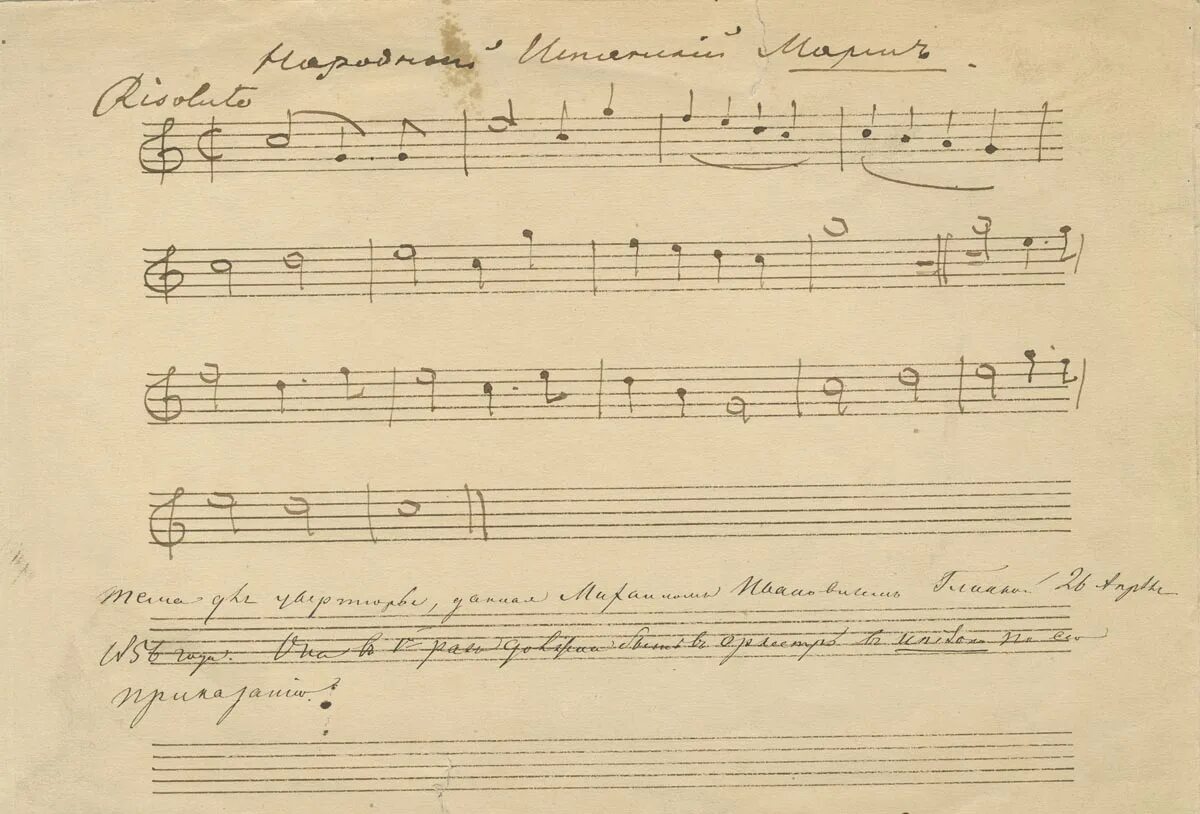 Народный Испанский Маршъ.
Risoluto
Тема для увертюры, данная Михаиломъ Ивановичемъ Глинкой 26 Апрѣля
1856 года. Она въ 1й разъ должна быть въ оркестрѣ въ по его
приказанію.